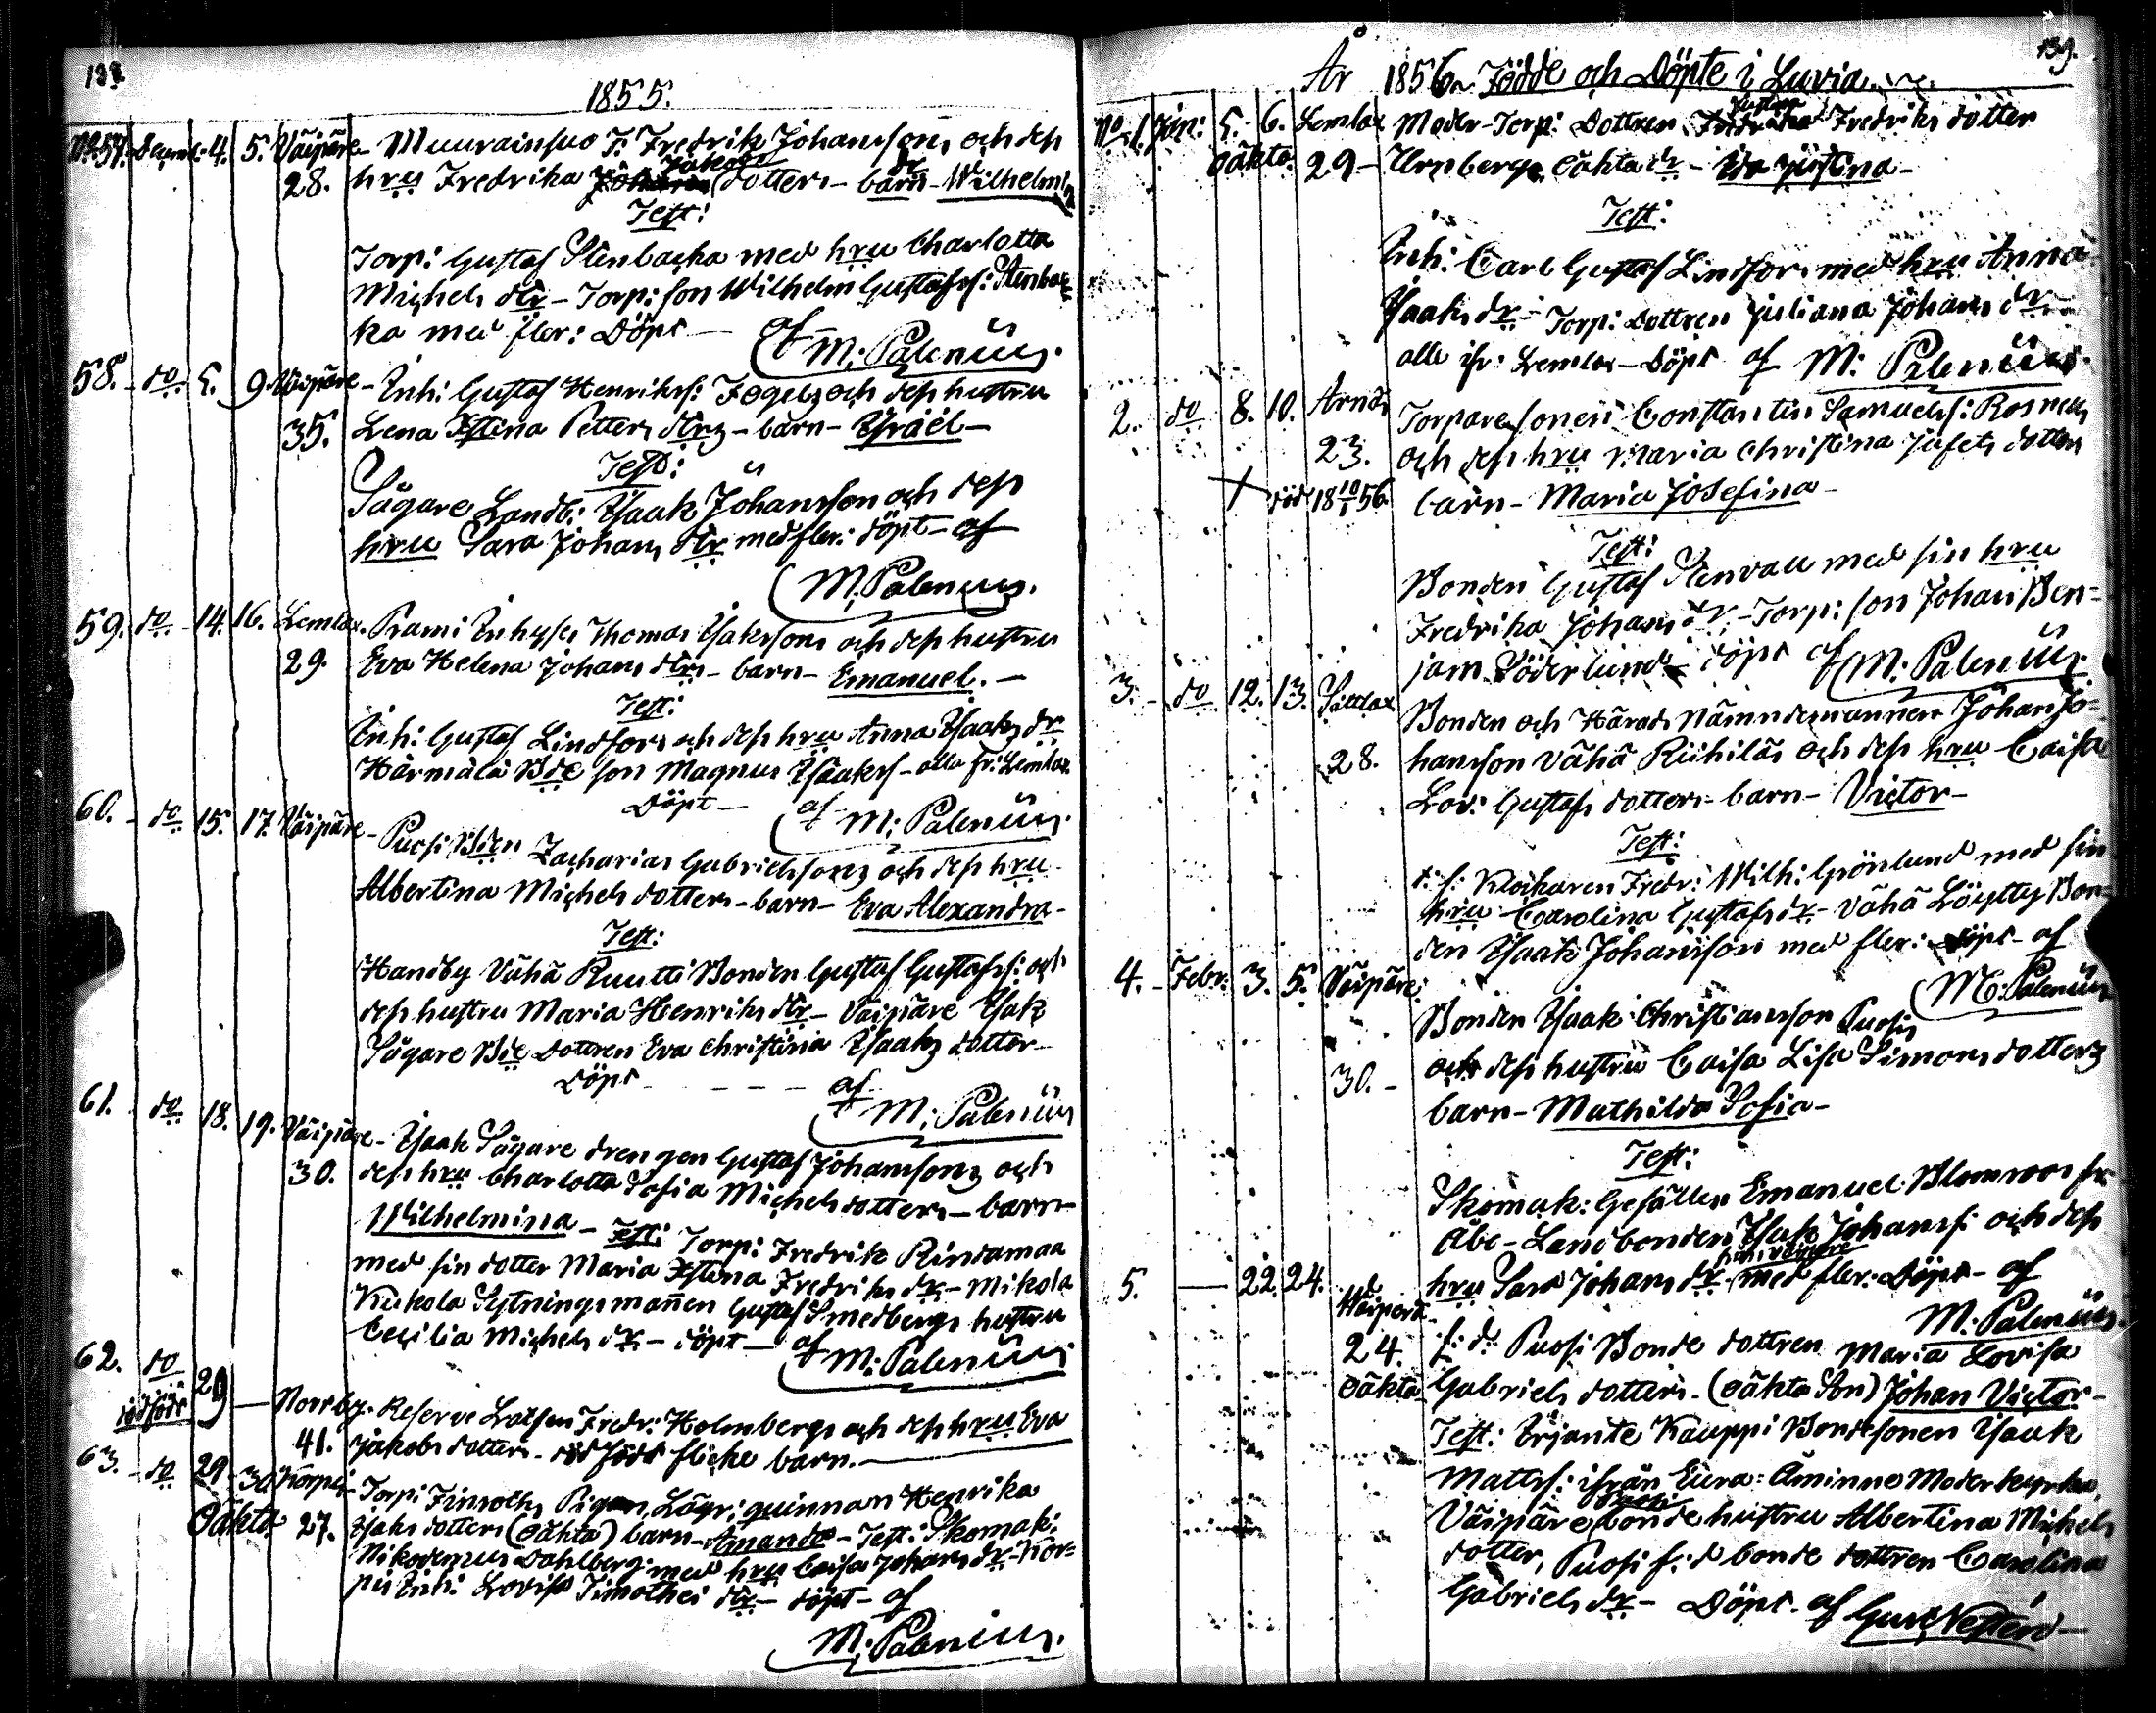 138.
1855.
No 57. Decemb: 4. 5. Väipäre - Muurainsuo T: Fredrik Johanssons och dess
28. hru Fredrika Jakobs dotters - barn - Wilhelm
Test:
Torp: Gustaf Stenbacka med hru Charlotta
Michels dtr - Torp: son Wilhelm Gustafss: Stenbac
ka med fler: Döpt - af M: Palenius.
58. do 5. 9. Väipäre - Inh: Gustaf Henrikss: Fogels och dess hustru
35. Lena Xstina Petters dtrs - barn - Ysraël -
Test:
Sågare Landb: Ysaak Johansson och dess
hru Sara Johans dtr med fler: döpt - af
M. Palenius.
59. do 14. 16. Lemlax. Prami Inhyses Thomas Ysakssons och dess hustru
29. Eva Helena Johans dtrs - barn - Emanuel. -
Test:
Inh: Gustaf Lindfors och dess hru Anna Ysaaks dr
Härmälä Bde son Magnus Ysaakss - alla fr: Lemlax
Döpt - af M: Palenius.
60. do 15. 17. Väipäre - Puosi Bden Zacharias Gabrielssons och dess hru
Albertina Michels dotters - barn - Eva Alexandra -
Test:
Handby Vähä Ruutti Bonden Gustaf Gustafss: och
dess hustru Maria Henriks dtr - Väipäre Ysak
Sågare Bde dottren Eva Christina Ysaaks dotter -
Döpt - - - - af M: Palenius
61. do 18. 19. Väipäre - Ysaak Sågare drengen Gustaf Johanssons och
30. dess hru Charlotta Sofia Michels dotters - barn -
Wilhelmina - Test: Torp: Fredrik Rindamaa
med sin dotter Maria Xstina Fredriks dr - Mikola
Kukola Sytningsmannen Gustaf Smedbergs hustru
Cecilia Michels dr - döpt - af M: Palenius
62. do 29 - Norrby. Reserve Fredr: Holmbergs och dess hru Eva
dödfödt 41. Jakobs dotters - dödfödt flicke barn. -
63. do 29 30 Korpi - Torp: Timoths Pigan, Lägr: quinnan Henrika
Oäkta 27. Ysaks dotters (oäkta) barn - Amanda - Test: Skomak:
Nikodemus Dahlberg med hru Caisa Johans dr - Kor-
pi Inh: Lovisa Timothei dtr - döpt - af
M: Palenius.
139.
År 1856 Födde och Döpte i Luvia
No 1. Jan: 5. 6. Lemlax Moder - Torp: Dottren Justina Fredriks dotter
oäkta 29 - Urnbergs oäkta dr - Ida Justina -
Test:
Inh: Carl Gustaf Lindfors med hru Anna
Ysaaks dr - Torp: dottren Juliana Johans dr -
alla ifr: Lemlax - Döpt af M: Palenius.
2. do 8. 10. Arnäs Torparesonen Constantin Samuelss: Rosnells
23. och dess hru Maria Christina Jufets dotters
död 18 10/1 56. barn - Maria Josefina -
Test:
Bonden Gustaf Stenvall med sin hru
Fredrika Johans dr - Torp: son Johan Ben=
jam Söderlund - döpt af M: Palenius.
3. do 12. 13. Sattlax Bonden och Härads Nämndemannen Johan Jo=
28. hansson Vähä Riihiläs och dess hru Caisa
Lov: Gustafs dotters - barn - Victor -
Test:
t: f: Klockaren Fredr: Wilh: Grönlund med sin
hru Carolina Gustafs dr - Vähä Löytty Bon-
den Ysaak Johansson med fler: döpt - af
M: Palenius
4. Febr: 3. 5. Väipäre: Bonden Ysaak Christiansson Puosis
30. - och dess hustru Caisa Lisa Simons dotters
barn - Mathilda Sofia -
Test:
Skomak: Gesällen Emanuel Blomroos fr:
Åbo - Landbonden Ysak Johanss: och dess
hru Sara Johans dr ifrån Väipäre med fler: Döpt - af
M: Palenius.
5. - 22. 24. Väiperä f: d: Puosi Bonde dottren Maria Lovisa
24. oäkta Gabriels dotters - (oäkta Son) Johan Victor -
Test: Erjante Kauppi Bondesonen Ysaak
Mattss: ifrån Eura: Åminne Moderkyrka,
Väipäre Puosi bonde hustru Albertina Michels
dotter, Puosi f: d bonde dottren Carolina
Gabriels dr - Döpt - af Gust Nesterd -